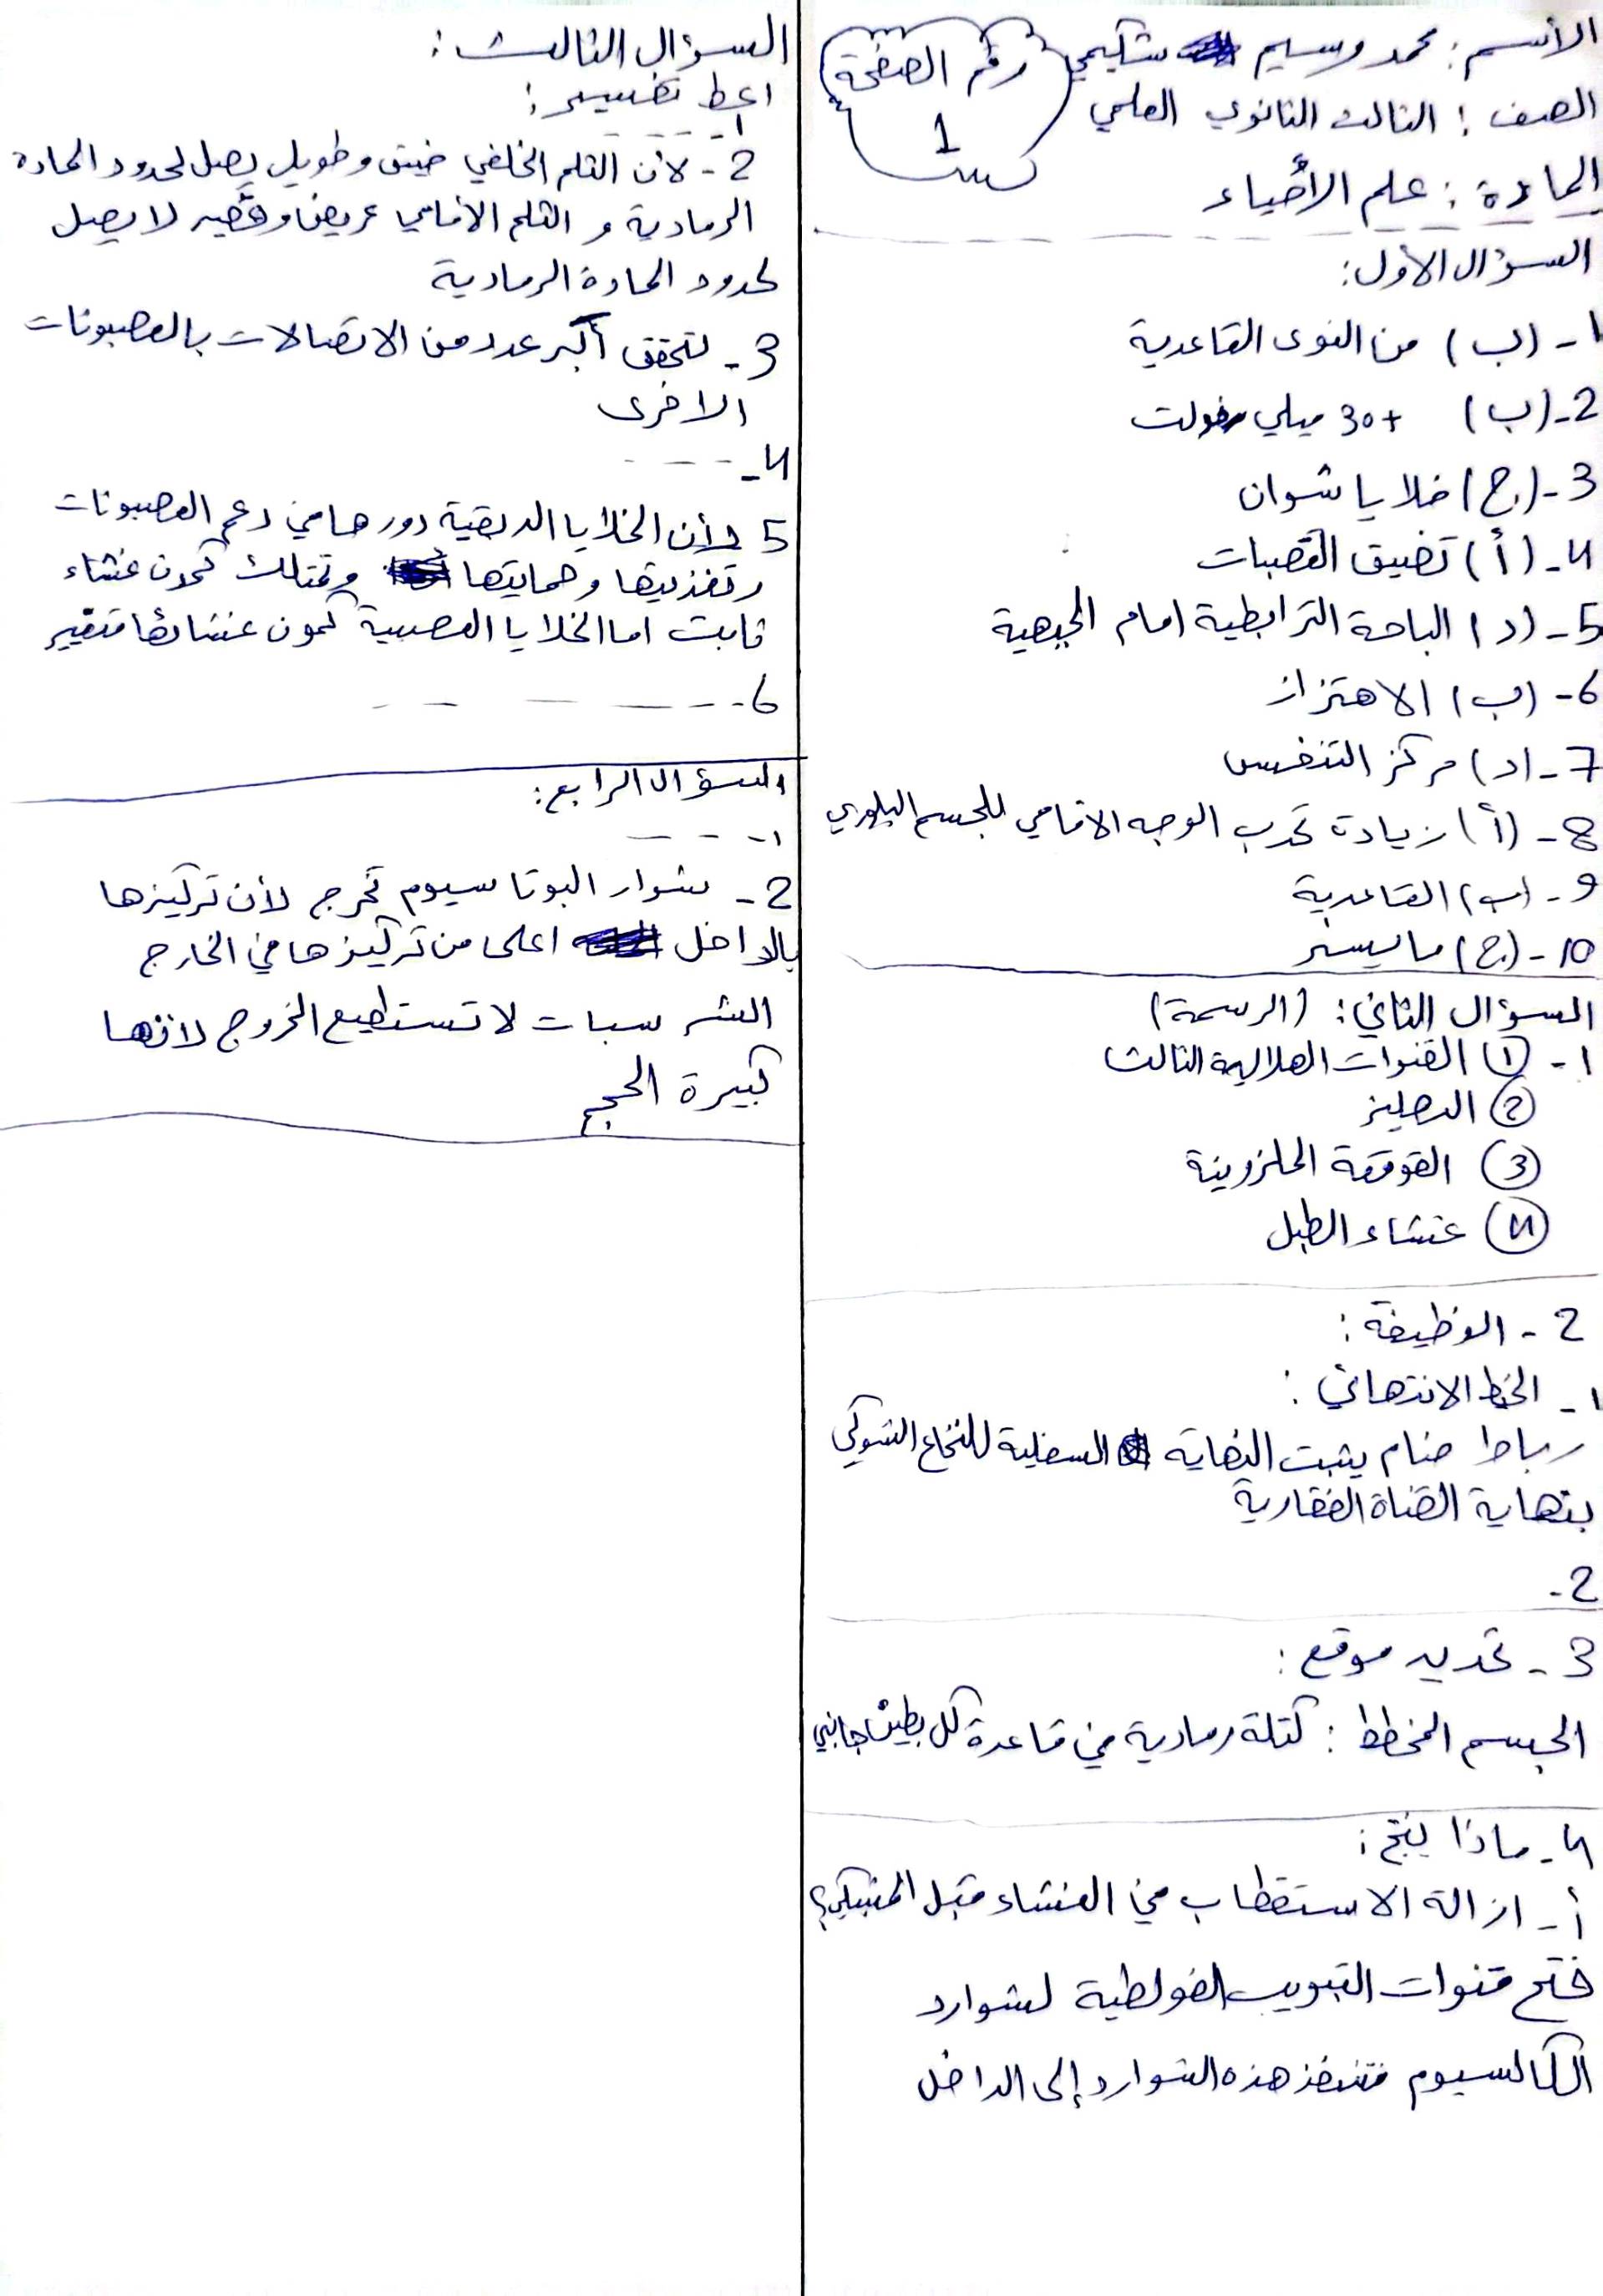 الاسم : محمد وسيم شكيمي
الصف : الثالث الثانوي العلمي
المادة : علم الأحياء
رقم الصفحة
1
السؤال الأول:
1- (ب) من النوى القاعدية
2- (ب) +30 ميلي فولت
3- (ج) خلايا شوان
4- (أ) تضيق القصبات
5- (د) الباحة الترابطية امام الجبهية
6- (ب) الاهتزاز
7- (د) مركز التنفس
8- (أ) زيادة تحدب الوجه الامامي للجسم البلوري
9- (ب) القاعدية
10- (ج) مايسنر
السؤال الثاني: (الرسمة)
1- ① القنوات الهلالية الثالث
② الدهليز
③ القوقعة الحلزونية
④ غشاء الطبل
2- الوظيفة :
1- الخيط الانتهائي :
رباط ضام يثبت النهاية السفلية للنخاع الشوكي
بنهاية القناة الفقارية
2-
3- تحديد موقع :
الجسم المخطط : كتلة رمادية في قاعدة كل بطين جانبي
4- ماذا ينتج :
أ- ازالة الاستقطاب في الغشاء قبل المشبكي؟
فتح قنوات التبويب الفولطية لشوارد
الكالسيوم فتنفذ هذه الشوارد إلى الداخل
السؤال الثالث :
اعط تفسير :
1- - - -
2- لأن الثلم الخلفي ضيق وطويل يصل لحدود المادة
الرمادية و الثلم الامامي عريض وقصير لا يصل
لحدود المادة الرمادية
3- لتحقق أكبر عدد من الاتصالات بالعصبونات
الاخرى
4- - - -
5 لأن الخلايا الدبقية دور هام في دعم العصبونات
وتغذيتها وحمايتها وتمتلك كمون غشاء
ثابت اما الخلايا العصبية كمون غشائها متغير
6- - - - - -
السؤال الرابع :
1- - - -
2- شوارد البوتاسيوم تخرج لأن تركيزها
بالداخل اعلى من تركيزها في الخارج
الشرسبات لا تستطيع الخروج لانها
كبيرة الحجم